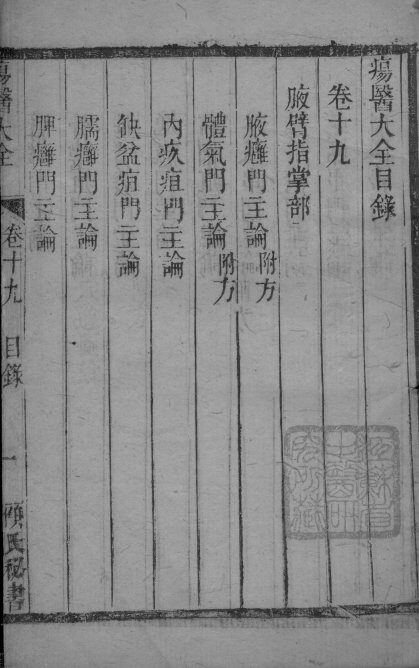 瘍醫大全目錄
卷十九
腋臂指掌部
腋癰門主論附方
體氣門主論附方
內疚疽門主論
缺盆疽門主論
臑癰門主論
胛癰門主論
瘍醫大全 卷十九 目錄 一 顧氏秘書